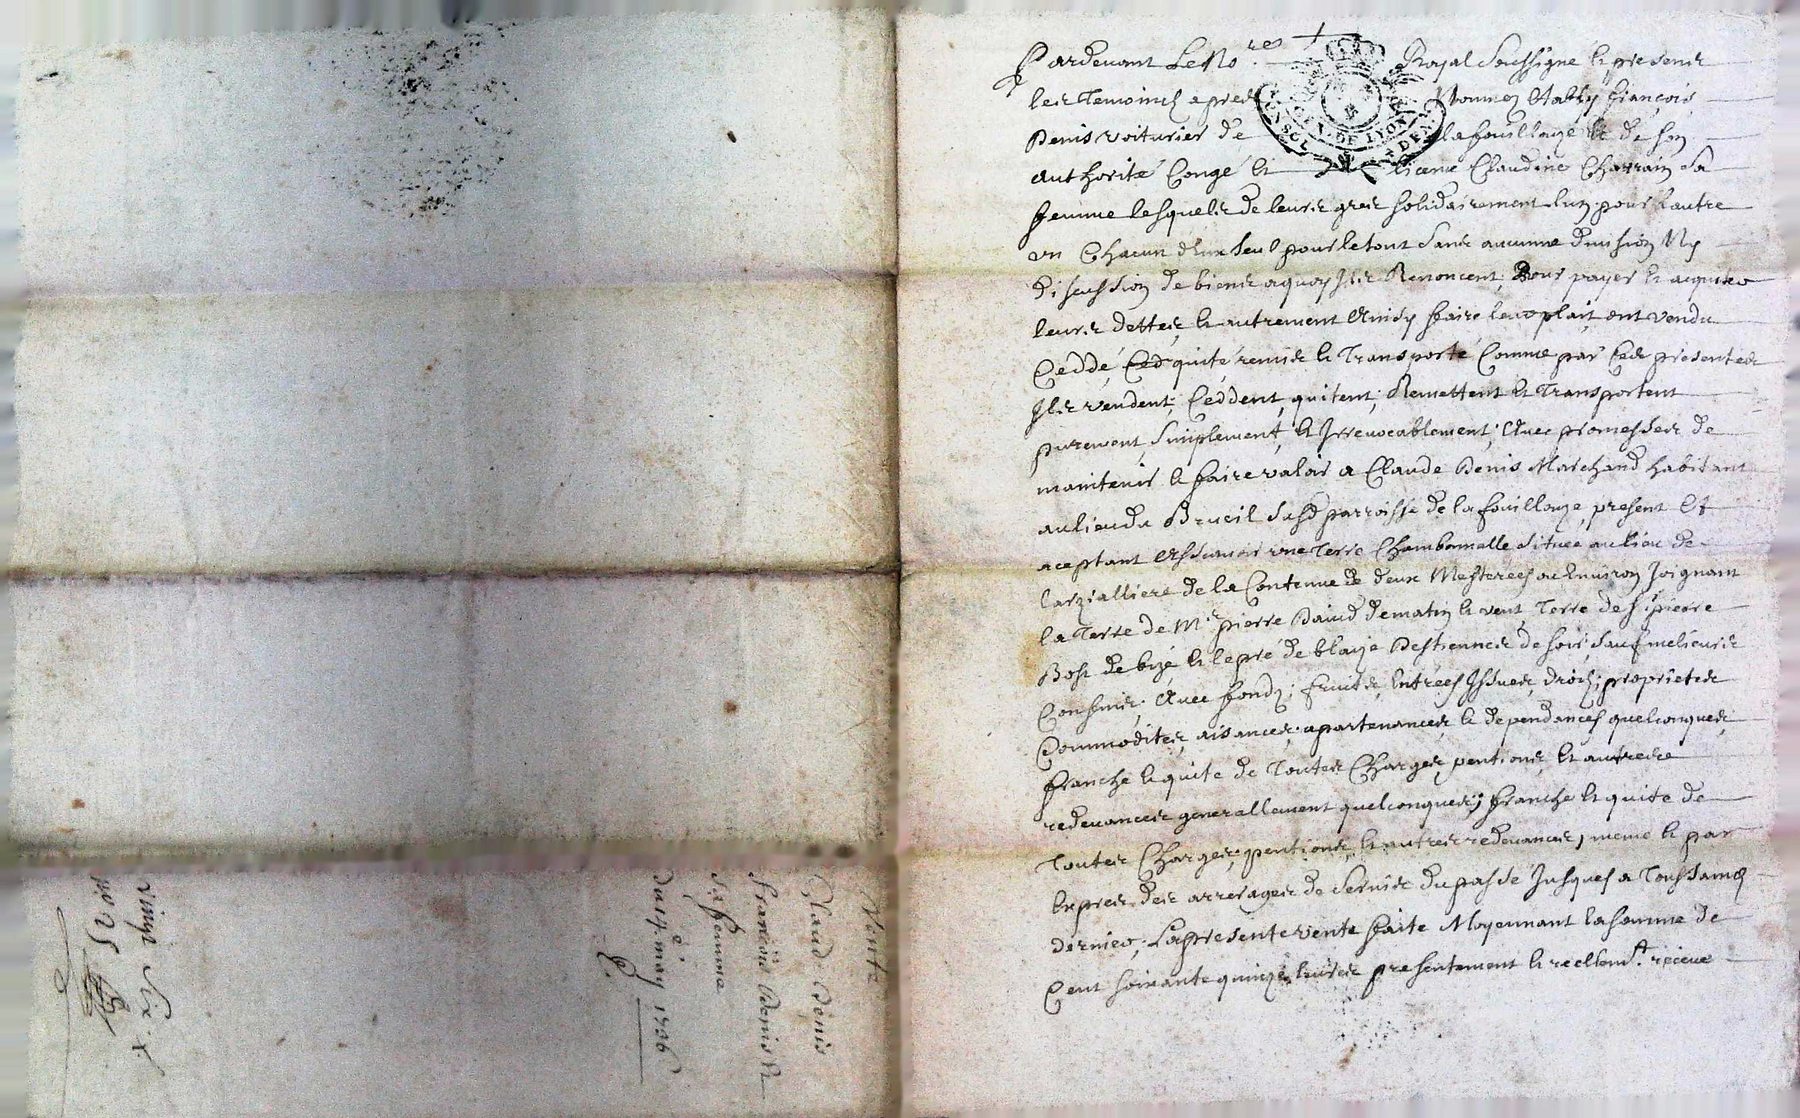 Pardevant Le No.re Royal Soussigne et presents
les Temoins apres Nommes Establi françois
Denis voiturier de la fouillouze et de son
authorité Congé et licence Claudine Charrain sa
femme lesquels de leurs gres solidairement lun pour l'autre
un Chacun d'eux seul pour le tout sans aucunne division Ny
discussion de biens a quoy Ils Renoncent, Pour payer et acquiter
leurs dettes, et autrement Ainsy faire leur plait ont vendu
Ceddé, quité remis et Transporté Comme par Ces presentes
Ils vendent, Ceddent, quitent, Remettent et Transportent
purement, simplement, et Irrevocablement, Avec promesses de
maintenir et faire valoir a Claude Denis Marchand habitant
au lieu du Brueil susd parroisse de la fouillouze, present Et
aceptant Assavoir une Terre Chambonnalle située au lieu de
de la Contenue de deux Mesterees ou Environ Joignant
la Terre de Mr pierre David de matin et vent, Terre de Sr pierre
Bost de bize et le pré de blaize Destiennes de soir, sauf melieurs
Confins, Avec fondz, fruits, Entrées Issues, droits, proprietes
Commodites, aisances, apartenances, et dependances quelconques,
franche et quite de Toutes Charges, pentions, et autres
redevances generallement quelconques, franche et quite de
Toutes Charges, pentions, et autres redevances, meme et par
Expres des arrerages de servis du passé Jusques a Toussaints
dernier, La presente vente faite Moyennant la somme de
Cent soixante quinze livres presentement et reellemt. receue
GEN. DE LYON
Vente
Claud Denis
françois Denis Et
sa femme
du 14e may 1726
no 25
vingt six